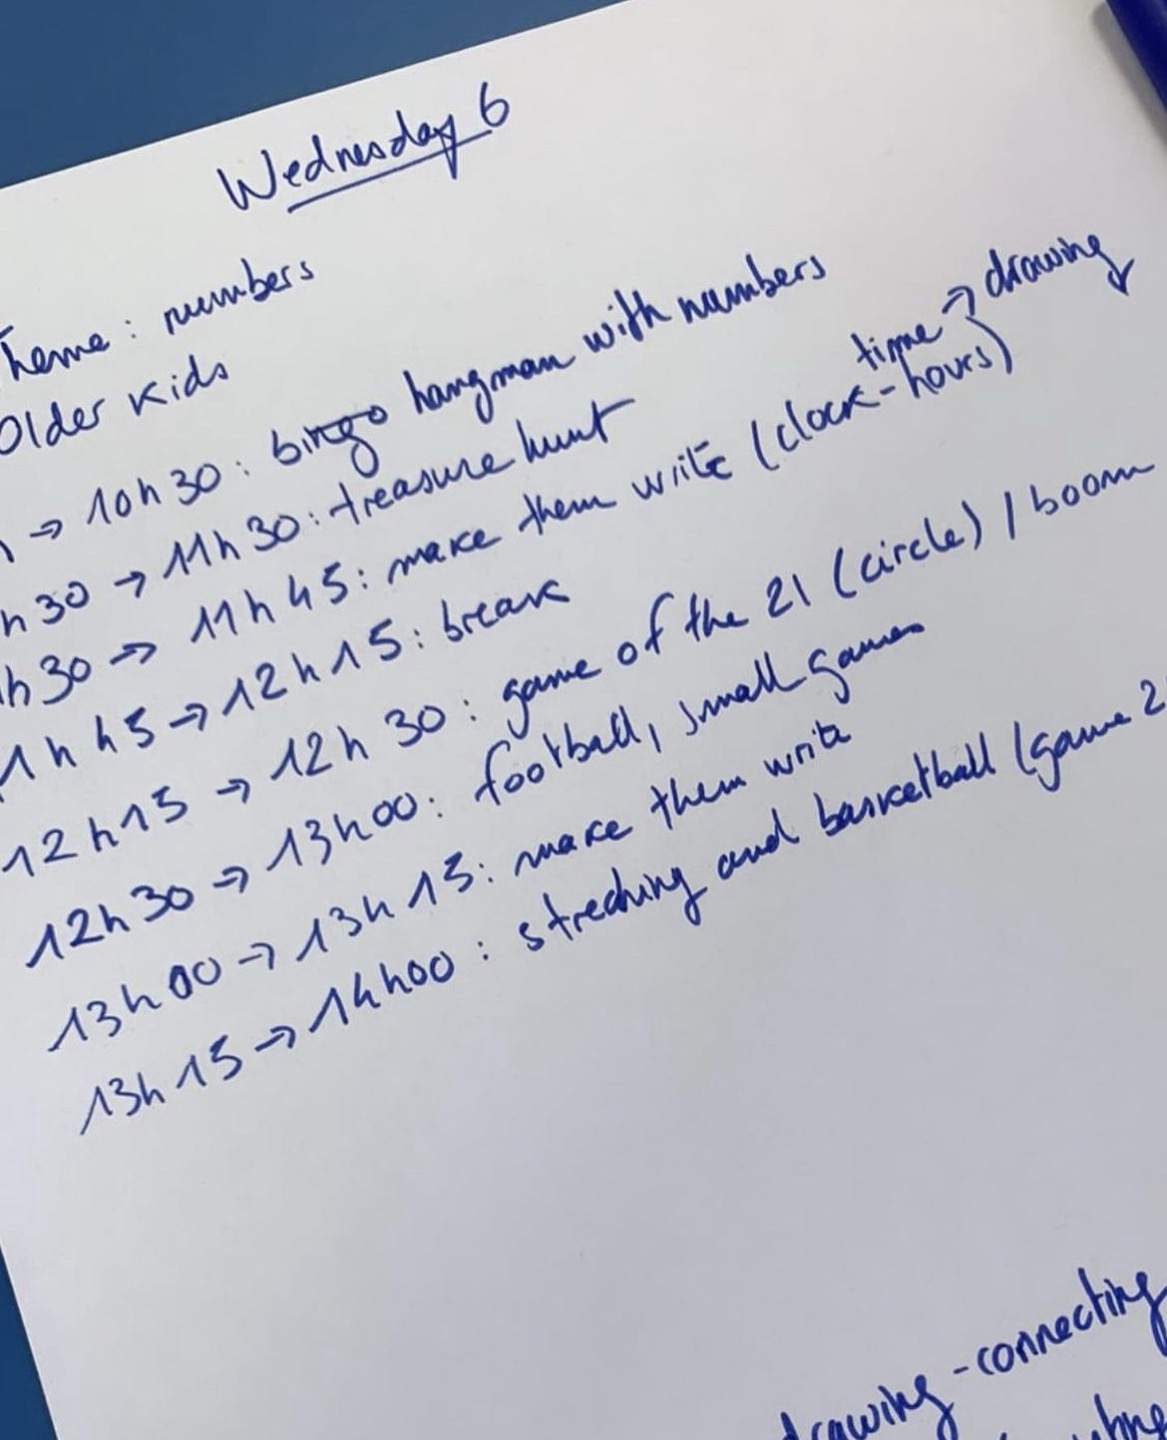 Wednesday 6
heme: numbers
Older kids
→ 10h30: bingo hangman with numbers
h30 → 11h30: treasure hunt
time → drawing
h30 → 11h45: make them write (clock-hours)
1h45 → 12h15: break
12h15 → 12h30: game of the 21 (circle) / boom
12h30 → 13h00: football, small games
13h00 → 13h15: make them write
13h15 → 14h00: streching and basketball (game 2
drawing - connecting